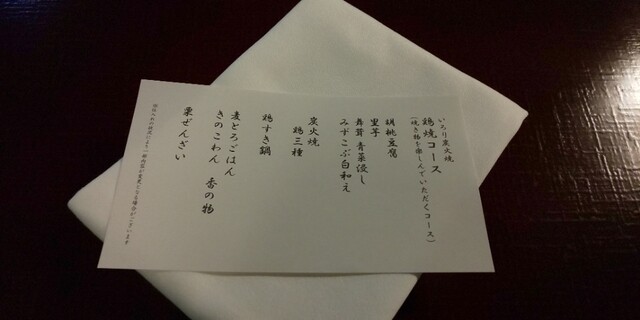 いろり炭火焼
鶏焼コース
(焼き物を楽しんでいただくコース)
胡桃豆腐
里芋
舞茸 青菜浸し
みずこぶ白和え
炭火焼
鶏三種
鶏すき鍋
麦とろごはん
きのこわん 香の物
栗ぜんざい